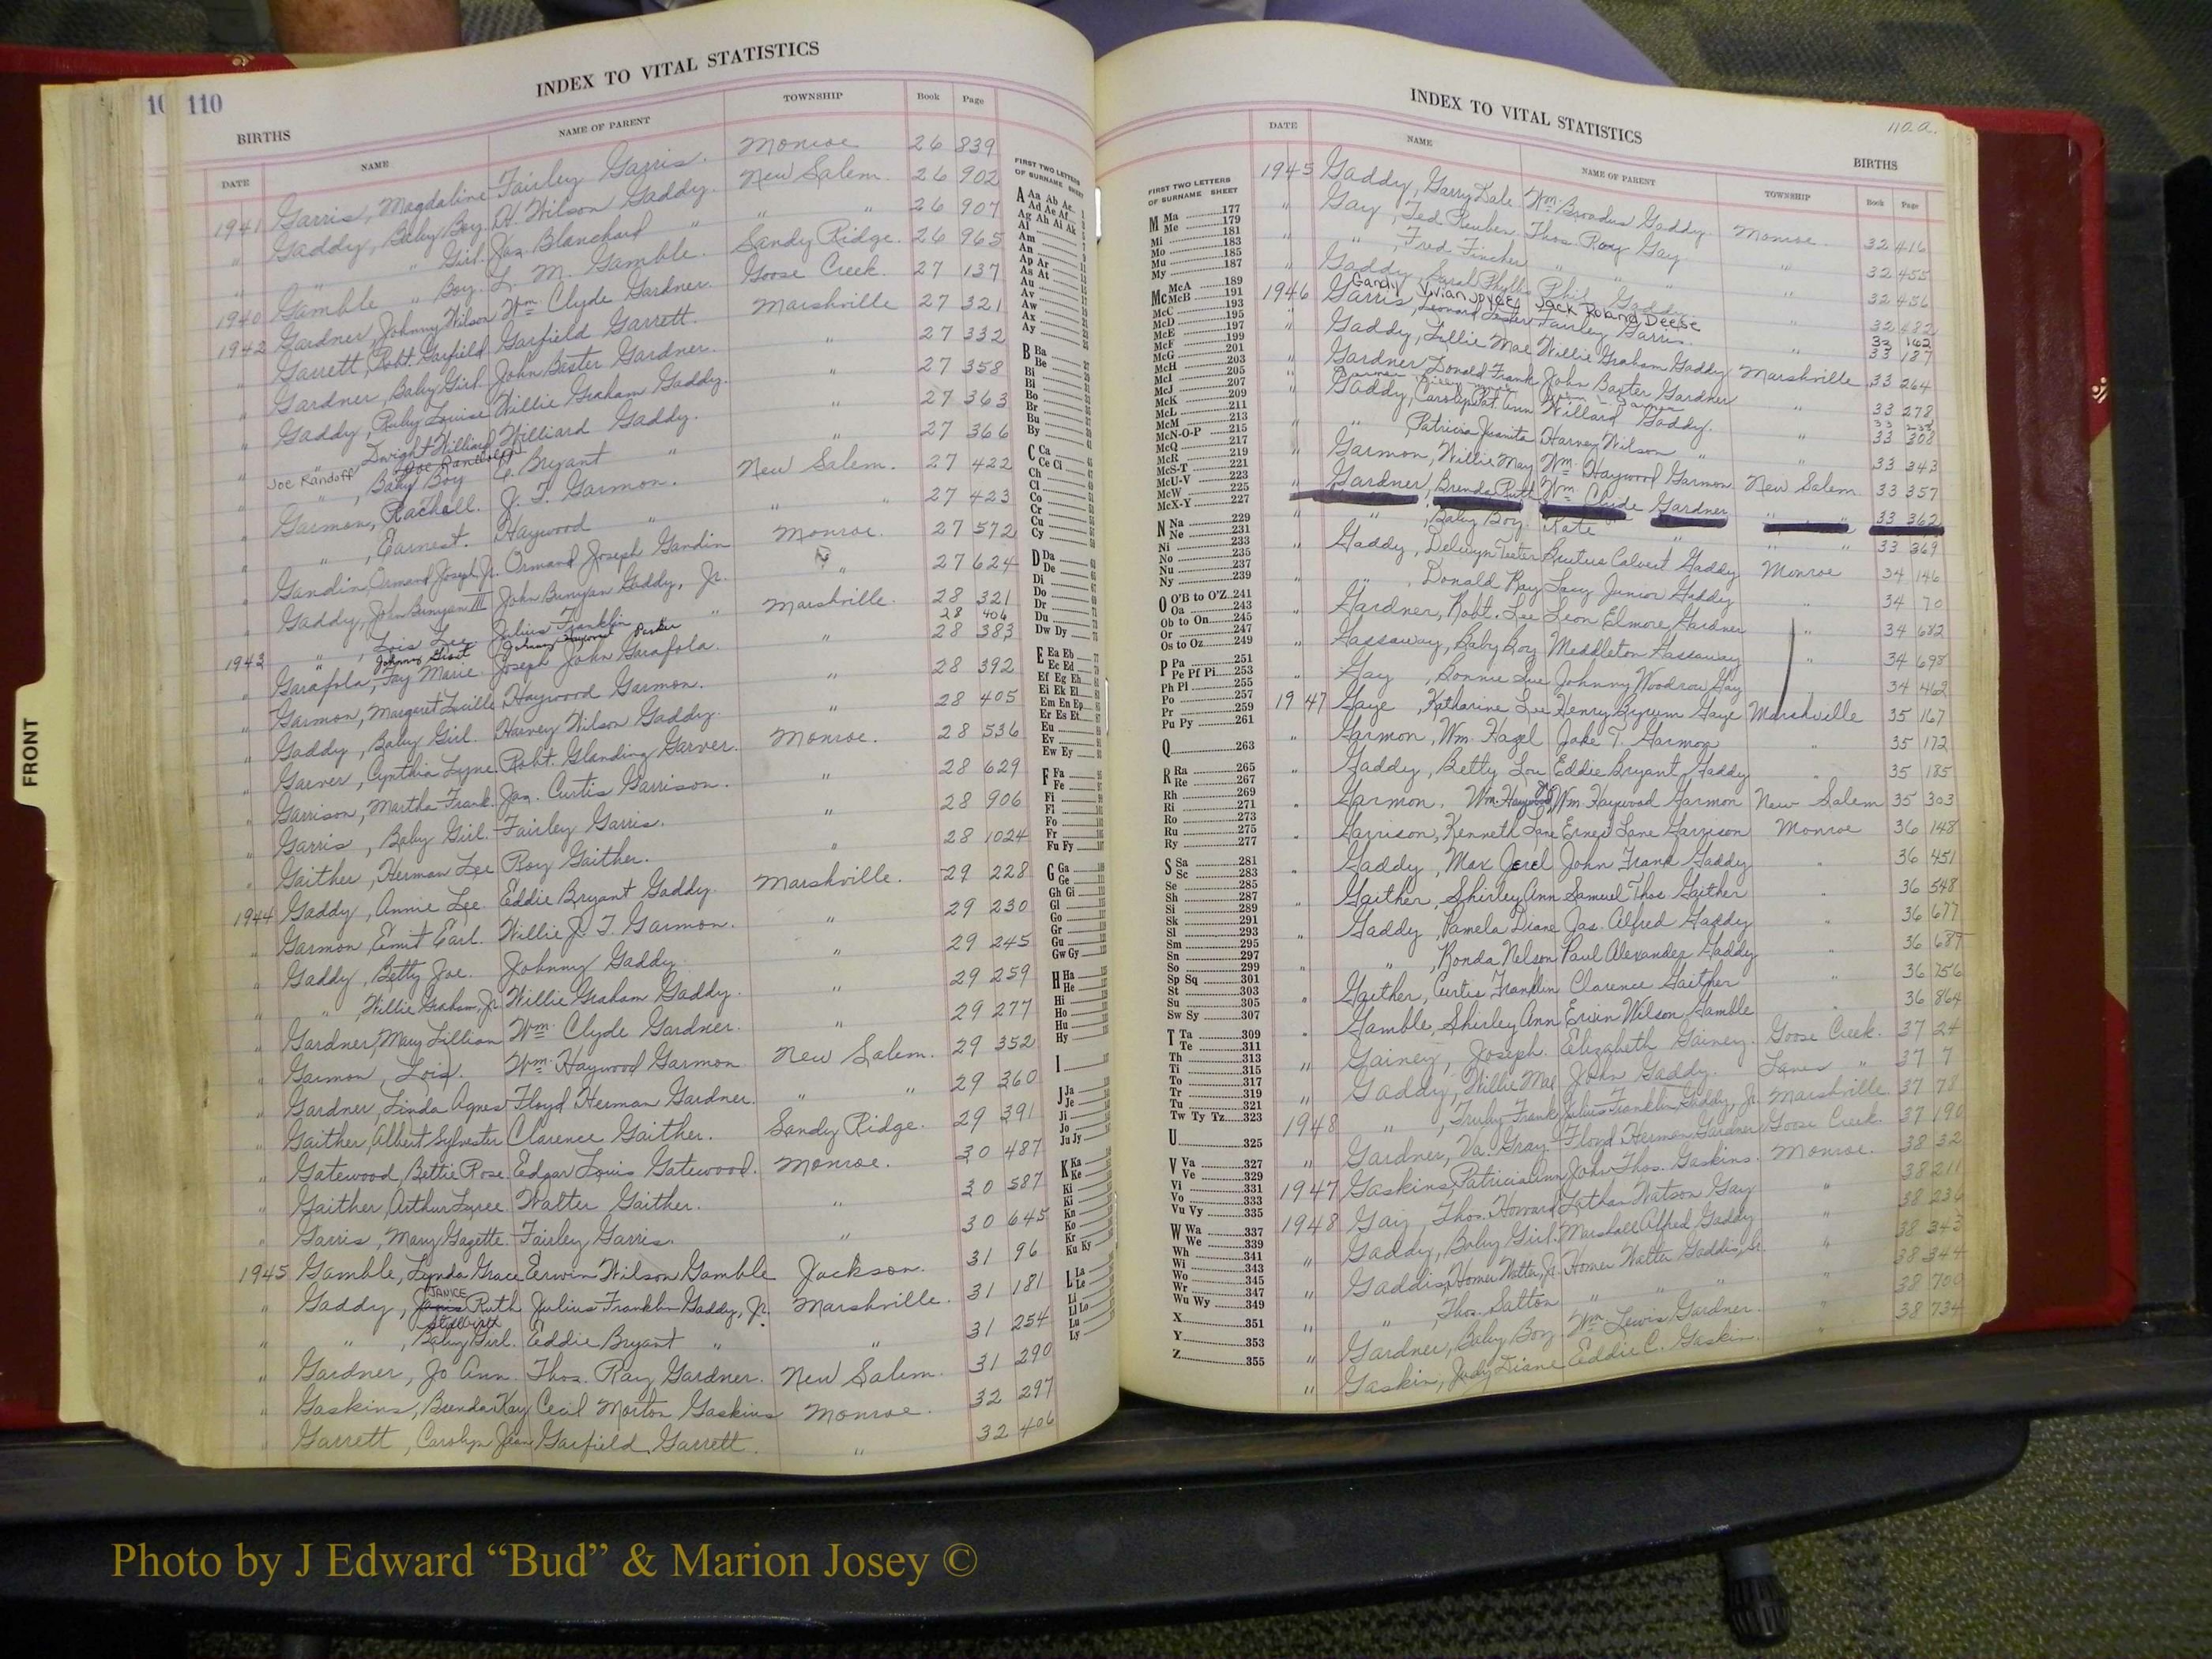 INDEX TO VITAL STATISTICS
110
BIRTHS
DATE NAME NAME OF PARENT TOWNSHIP Book Page
1941 Garris, Magdaline Fairley Garris. Monroe 26 839
" Gaddy, Baby Boy. H. Wilson Gaddy. New Salem. 26 902
" " " Girl. Jas. Blanchard " " " 26 907
1940 Gamble " Boy. L. M. Gamble. Sandy Ridge. 26 965
1942 Gardner, Johnny Wilson Wm. Clyde Gardner. Goose Creek. 27 137
" Garrett, Robt. Garfield Garfield Garrett. Marshville 27 321
" Gardner, Baby Girl. John Baxter Gardner. " 27 332
" Gaddy, Ruby Louise Willie Graham Gaddy. " 27 358
" " Dwight Williard Williard Gaddy. " 27 363
Joe Randolf
" " , Baby Boy E. Bryant " " 27 366
" Garmon, Rachall. J. T. Garmon. New Salem. 27 422
" " , Earnest. Haywood " " " 27 423
" Gandin, Ormand Joseph Jr. Ormand Joseph Gandin Monroe. 27 572
" Gaddy, John Bunyan III John Bunyan Gaddy, Jr. " 27 624
1943 " , Lois Lee. Julius Franklin " Marshville. 28 321
Johnny 28 406
" Garafola, Fay Marie. Joseph John Garafola. " 28 383
" Garmon, Margaret Lucille Haywood Garmon. " 28 392
" Gaddy, Baby Girl. Harvey Wilson Gaddy. " 28 405
" Garver, Cynthia Lyne. Robt. Glanding Garver. Monroe. 28 536
" Garrison, Martha Frank. Jas. Curtis Garrison. " 28 629
" Garris, Baby Girl. Fairley Garris. " 28 906
" Gaither, Herman Lee Roy Gaither. " 28 1024
1944 Gaddy, Annie Lee. Eddie Bryant Gaddy. Marshville. 29 228
" Garmon, Emit Earl. Willie J. T. Garmon. " 29 230
" Gaddy, Betty Joe. Johnny Gaddy. " 29 245
" " , Willie Graham, Jr. Willie Graham Gaddy. " 29 259
" Gardner, Mary Lillian Wm. Clyde Gardner. " 29 277
" Garmon, Lois. Wm. Haywood Garmon. New Salem. 29 352
" Gardner, Linda Agnes Floyd Herman Gardner. " " 29 360
" Gaither, Albert Sylvester Clarence Gaither. Sandy Ridge. 29 391
" Gatewood, Bettie Rose. Edgar Louis Gatewood. Monroe. 30 487
" Gaither, Arthur Lyree Walter Gaither. " 30 587
" Garris, Mary Gazette. Fairley Garris. " 30 645
1945 Gamble, Lynda Grace Erwin Wilson Gamble Jackson. 31 96
JANICE
" Gaddy, Janis Ruth Julius Franklin Gaddy, Jr. Marshville. 31 181
Stillbirth
" " , Baby Girl. Eddie Bryant " " 31 254
" Gardner, Jo Ann. Thos. Ray Gardner. New Salem. 31 290
" Gaskins, Brenda Kay Cecil Morton Gaskins Monroe. 32 297
" Garrett, Carolyn Jean Garfield Garrett. " 32 406
FIRST TWO LETTERS
OF SURNAME SHEET
A Aa Ab Ac
Ad Ae Af
Ag Ah Ai Ak
Al
Am
An
Ap Ar
As At
Au
Av
Aw
Ax
Ay
B Ba
Be
Bi
Bl
Bo
Br
Bu
By
C Ca
Ce Ci
Ch
Cl
Co
Cr
Cu
Cy
D Da
De
Di
Do
Dr
Du
Dw Dy
E Ea Eb
Ec Ed
Ef Eg Eh
Ei Ek El
Em En Ep
Er Es Et
Eu
Ev
Ew Ey
F Fa
Fe
Fi
Fl
Fo
Fr
Fu Fy
G Ga
Ge
Gh Gi
Gl
Go
Gr
Gu
Gw Gy
H Ha
He
Hi
Ho
Hu
Hy
I
J Ja
Je
Ji
Jo
Ju Jy
K Ka
Ke
Ki
Kl
Kn
Ko
Kr
Ku Ky
L La
Le
Li
Ll Lo
Lu
Ly
FRONT
INDEX TO VITAL STATISTICS
110 a.
BIRTHS
DATE NAME NAME OF PARENT TOWNSHIP Book Page
FIRST TWO LETTERS
OF SURNAME SHEET
M Ma 177
Me 179
Mi 181
Mo 183
Mu 185
My 187
Mc McA 189
McB 191
McC 193
McD 195
McE 197
McF 199
McG 201
McH 203
McI 205
McJ 207
McK 209
McL 211
McM 213
McN-O-P 215
McQ 217
McR 219
McS-T 221
McU-V 223
McW 225
McX-Y 227
N Na 229
Ne 231
Ni 233
No 235
Nu 237
Ny 239
O O'B to O'Z 241
Oa 243
Ob to On 245
Or 247
Os to Oz 249
P Pa 251
Pe Pf Pi 253
Ph Pl 255
Po 257
Pr 259
Pu Py 261
Q 263
R Ra 265
Re 267
Rh 269
Ri 271
Ro 273
Ru 275
Ry 277
S Sa 281
Sc 283
Se 285
Sh 287
Si 289
Sk 291
Sl 293
Sm 295
Sn 297
So 299
Sp Sq 301
St 303
Su 305
Sw Sy 307
T Ta 309
Te 311
Th 313
Ti 315
To 317
Tr 319
Tu 321
Tw Ty Tz 323
U 325
V Va 327
Ve 329
Vi 331
Vo 333
Vu Vy 335
W Wa 337
We 339
Wh 341
Wi 343
Wo 345
Wr 347
Wu Wy 349
X 351
Y 353
Z 355
1945 Gaddy, Garry Dale. Wm. Broadus Gaddy. Monroe. 32 416
" Gay, Ted Reuben. Thos. Roy Gay " 32 455
" " , Fred Fincher " " " 32 456
" Gaddy, Phyllis Phil Gaddy. " 32 482
Gandy Vivian Joyce Jack Roland Deese 33 162
1946 Garris, Leonard Fairley Garris. " 33 187
" Gaddy, Lillie Mae Willie Graham Gaddy Marshville 33 264
" Gardner Donald Frank John Baxter Gardner " 33 278
" Gaddy, Carolyn Pat Ann Willard Gaddy. " 33 308
" " Patricia Juanita Harvey Wilson " " 33 343
" Garmon, Willie May Wm. Haywood Garmon New Salem 33 357
" Gardner, Brenda Ruth Wm. Clyde Gardner " " 33 362
" " , Baby Boy. Kate " " " 33 369
" Gaddy, Delwyn Teeter Brutus Calvert Gaddy Monroe 34 146
" " , Donald Ray Lacy Junior Gaddy " 34 70
" Gardner, Robt. Lee Leon Elmore Gardner " 34 682
" Gassaway, Baby Boy Meddleton Gassaway " 34 698
" Gay, Bonnie Sue Johnny Woodrow Gay 34 462
1947 Gaye, Katharine Lee Henry Byrum Gaye Marshville 35 167
" Garmon, Wm. Hazel Jake T. Garmon " 35 172
" Gaddy, Betty Lou Eddie Bryant Gaddy " 35 185
" Garmon, Wm. Haywood Jr. Wm. Haywood Garmon New Salem 35 303
" Garrison, Kenneth Lane Ernest Lane Garrison Monroe 36 148
" Gaddy, Max Jerel John Frank Gaddy " 36 451
" Gaither, Shirley Ann Samuel Thos. Gaither " 36 548
" Gaddy, Pamela Diane Jas. Alfred Gaddy " 36 677
" " , Ronda Nelson Paul Alexander Gaddy " 36 687
" Gaither, Curtis Franklin Clarence Gaither " 36 756
" Gamble, Shirley Ann Erwin Wilson Gamble " 36 864
" Gainey, Joseph. Elizabeth Gainey. Goose Creek. 37 24
" Gaddy, Willie Mae John Gaddy. Lanes " 37 7
1948 " , Frank Julius Franklin Gaddy, Jr. Marshville 37 78
" Gardner, Va. Gray. Floyd Herman Gardner Goose Creek. 37 190
1947 Gaskins, Patricia Ann John Thos. Gaskins. Monroe. 38 32
1948 Gay, Thos. Howard Lathan Watson Gay " 38 211
" Gaddy, Baby Girl. Marshall Alfred Gaddy " 38 236
" Gaddis, Homer Walter, Jr. Homer Walter Gaddis, Sr. " 38 343
" " , Thos. Salton " " " 38 344
" Gardner, Baby Boy Wm. Lewis Gardner. " 38 700
" Gaskin, Judy Diane Eddie C. Gaskin. " 38 734
Photo by J Edward “Bud” & Marion Josey ©